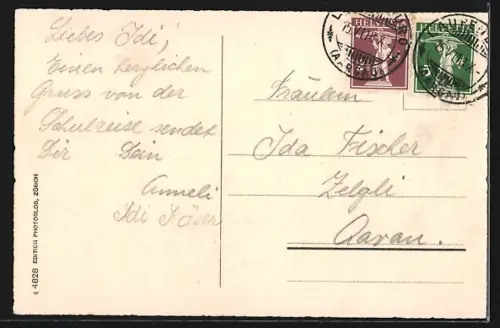 Liebes Idi,
Einen herzlichen
Gruss von der
Schulreise sendet
Dir Dein
Anneli
Idi
Fräulein
Ida Fischer
Zelgli
Aarau.
4828 EDITION PHOTOGLOB, ZÜRICH
HELVETIA
HELVETIA
5
(AARGAU)